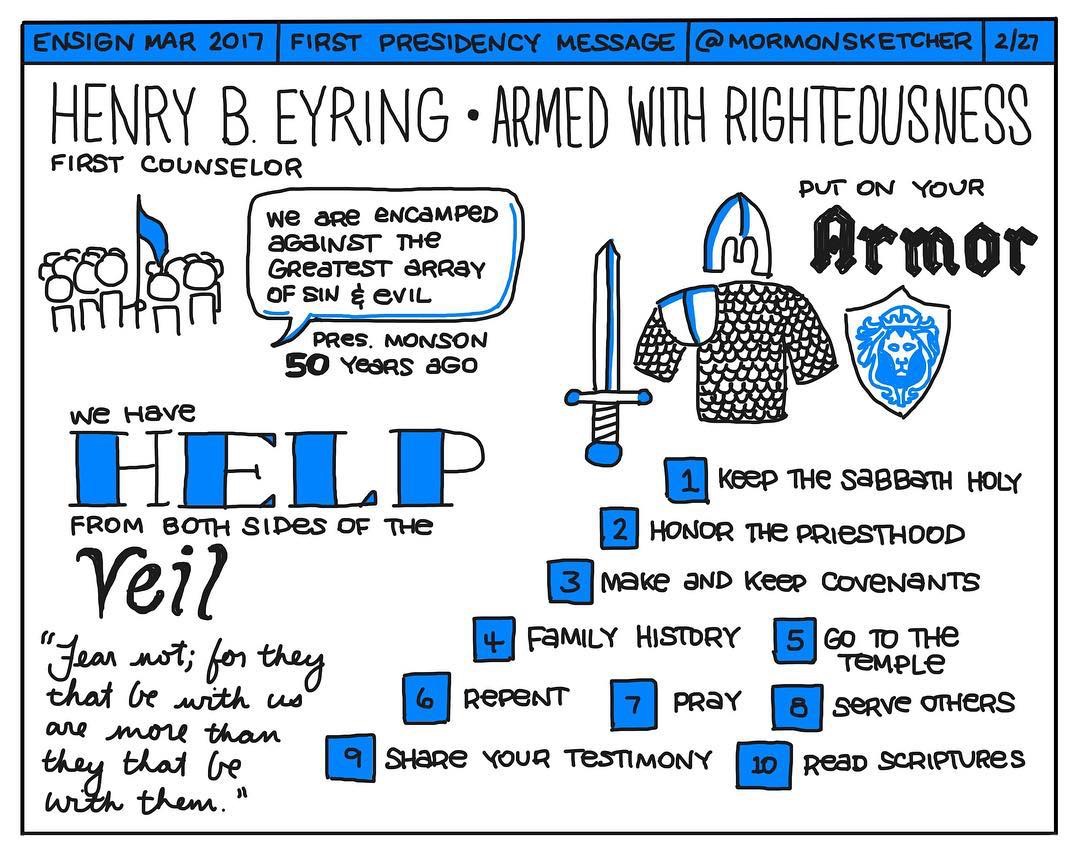 ENSIGN MAR 2017 | FIRST PRESIDENCY MESSAGE | @MORMONSKETCHER | 2/27
HENRY B. EYRING • ARMED WITH RIGHTEOUSNESS
FIRST COUNSELOR
WE ARE ENCAMPED
AGAINST THE
GREATEST ARRAY
OF SIN & EVIL
PRES. MONSON
50 YEARS AGO
PUT ON YOUR
Armor
WE HAVE
HELP
FROM BOTH SIDES OF THE
Veil
"Fear not; for they
that be with us
are more than
they that be
with them."
1 KEEP THE SABBATH HOLY
2 HONOR THE PRIESTHOOD
3 MAKE AND KEEP COVENANTS
4 FAMILY HISTORY
5 GO TO THE
TEMPLE
6 REPENT
7 PRAY
8 SERVE OTHERS
9 SHARE YOUR TESTIMONY
10 READ SCRIPTURES